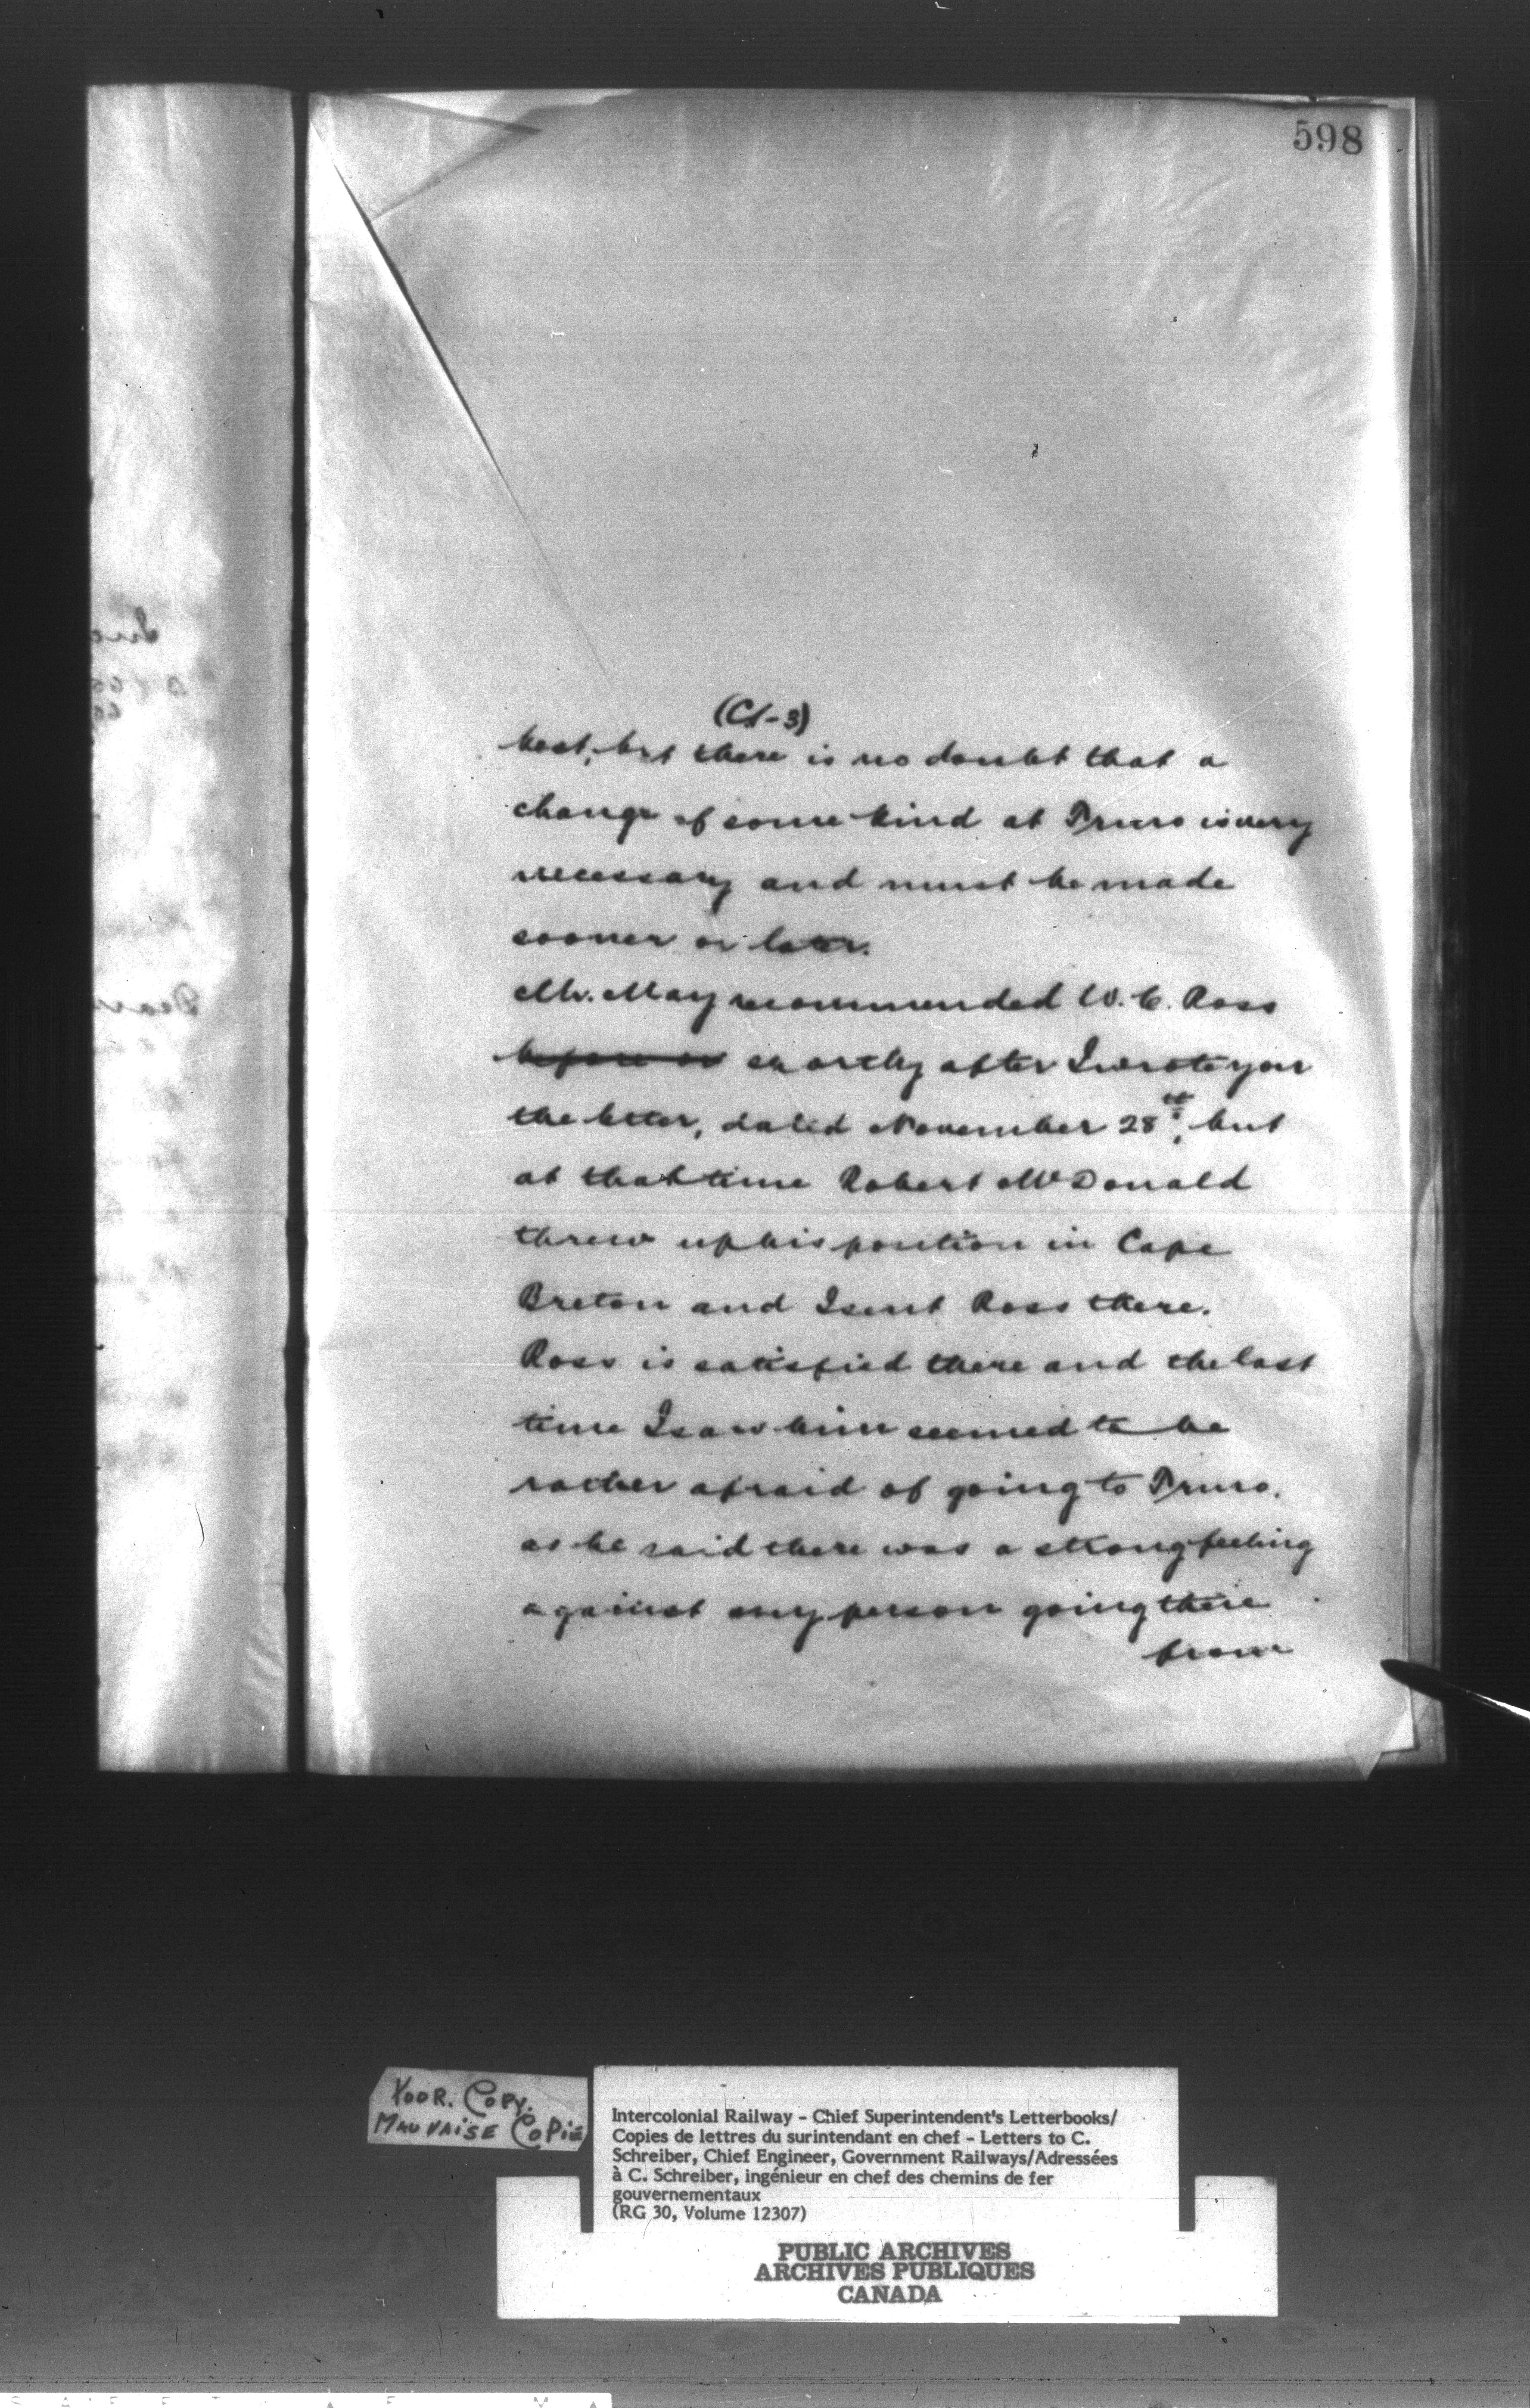 598
(CS-3)
best, but there is no doubt that a
change of some kind at Truro is very
necessary and must be made
sooner or later.
Mr. May recommended W. C. Ross
before or shortly after I wrote you
the letter, dated November 28th, but
at that time Robert McDonald
threw up his position in Cape
Breton and I sent Ross there.
Ross is satisfied there and the last
time I saw him seemed to be
rather afraid of going to Truro.
as he said there was a strong feeling
against any person going there
from
Dear
POOR. COPY.
MAUVAISE COPIE
Intercolonial Railway - Chief Superintendent's Letterbooks/
Copies de lettres du surintendant en chef - Letters to C.
Schreiber, Chief Engineer, Government Railways/Adressées
à C. Schreiber, ingénieur en chef des chemins de fer
gouvernementaux
(RG 30, Volume 12307)
PUBLIC ARCHIVES
ARCHIVES PUBLIQUES
CANADA